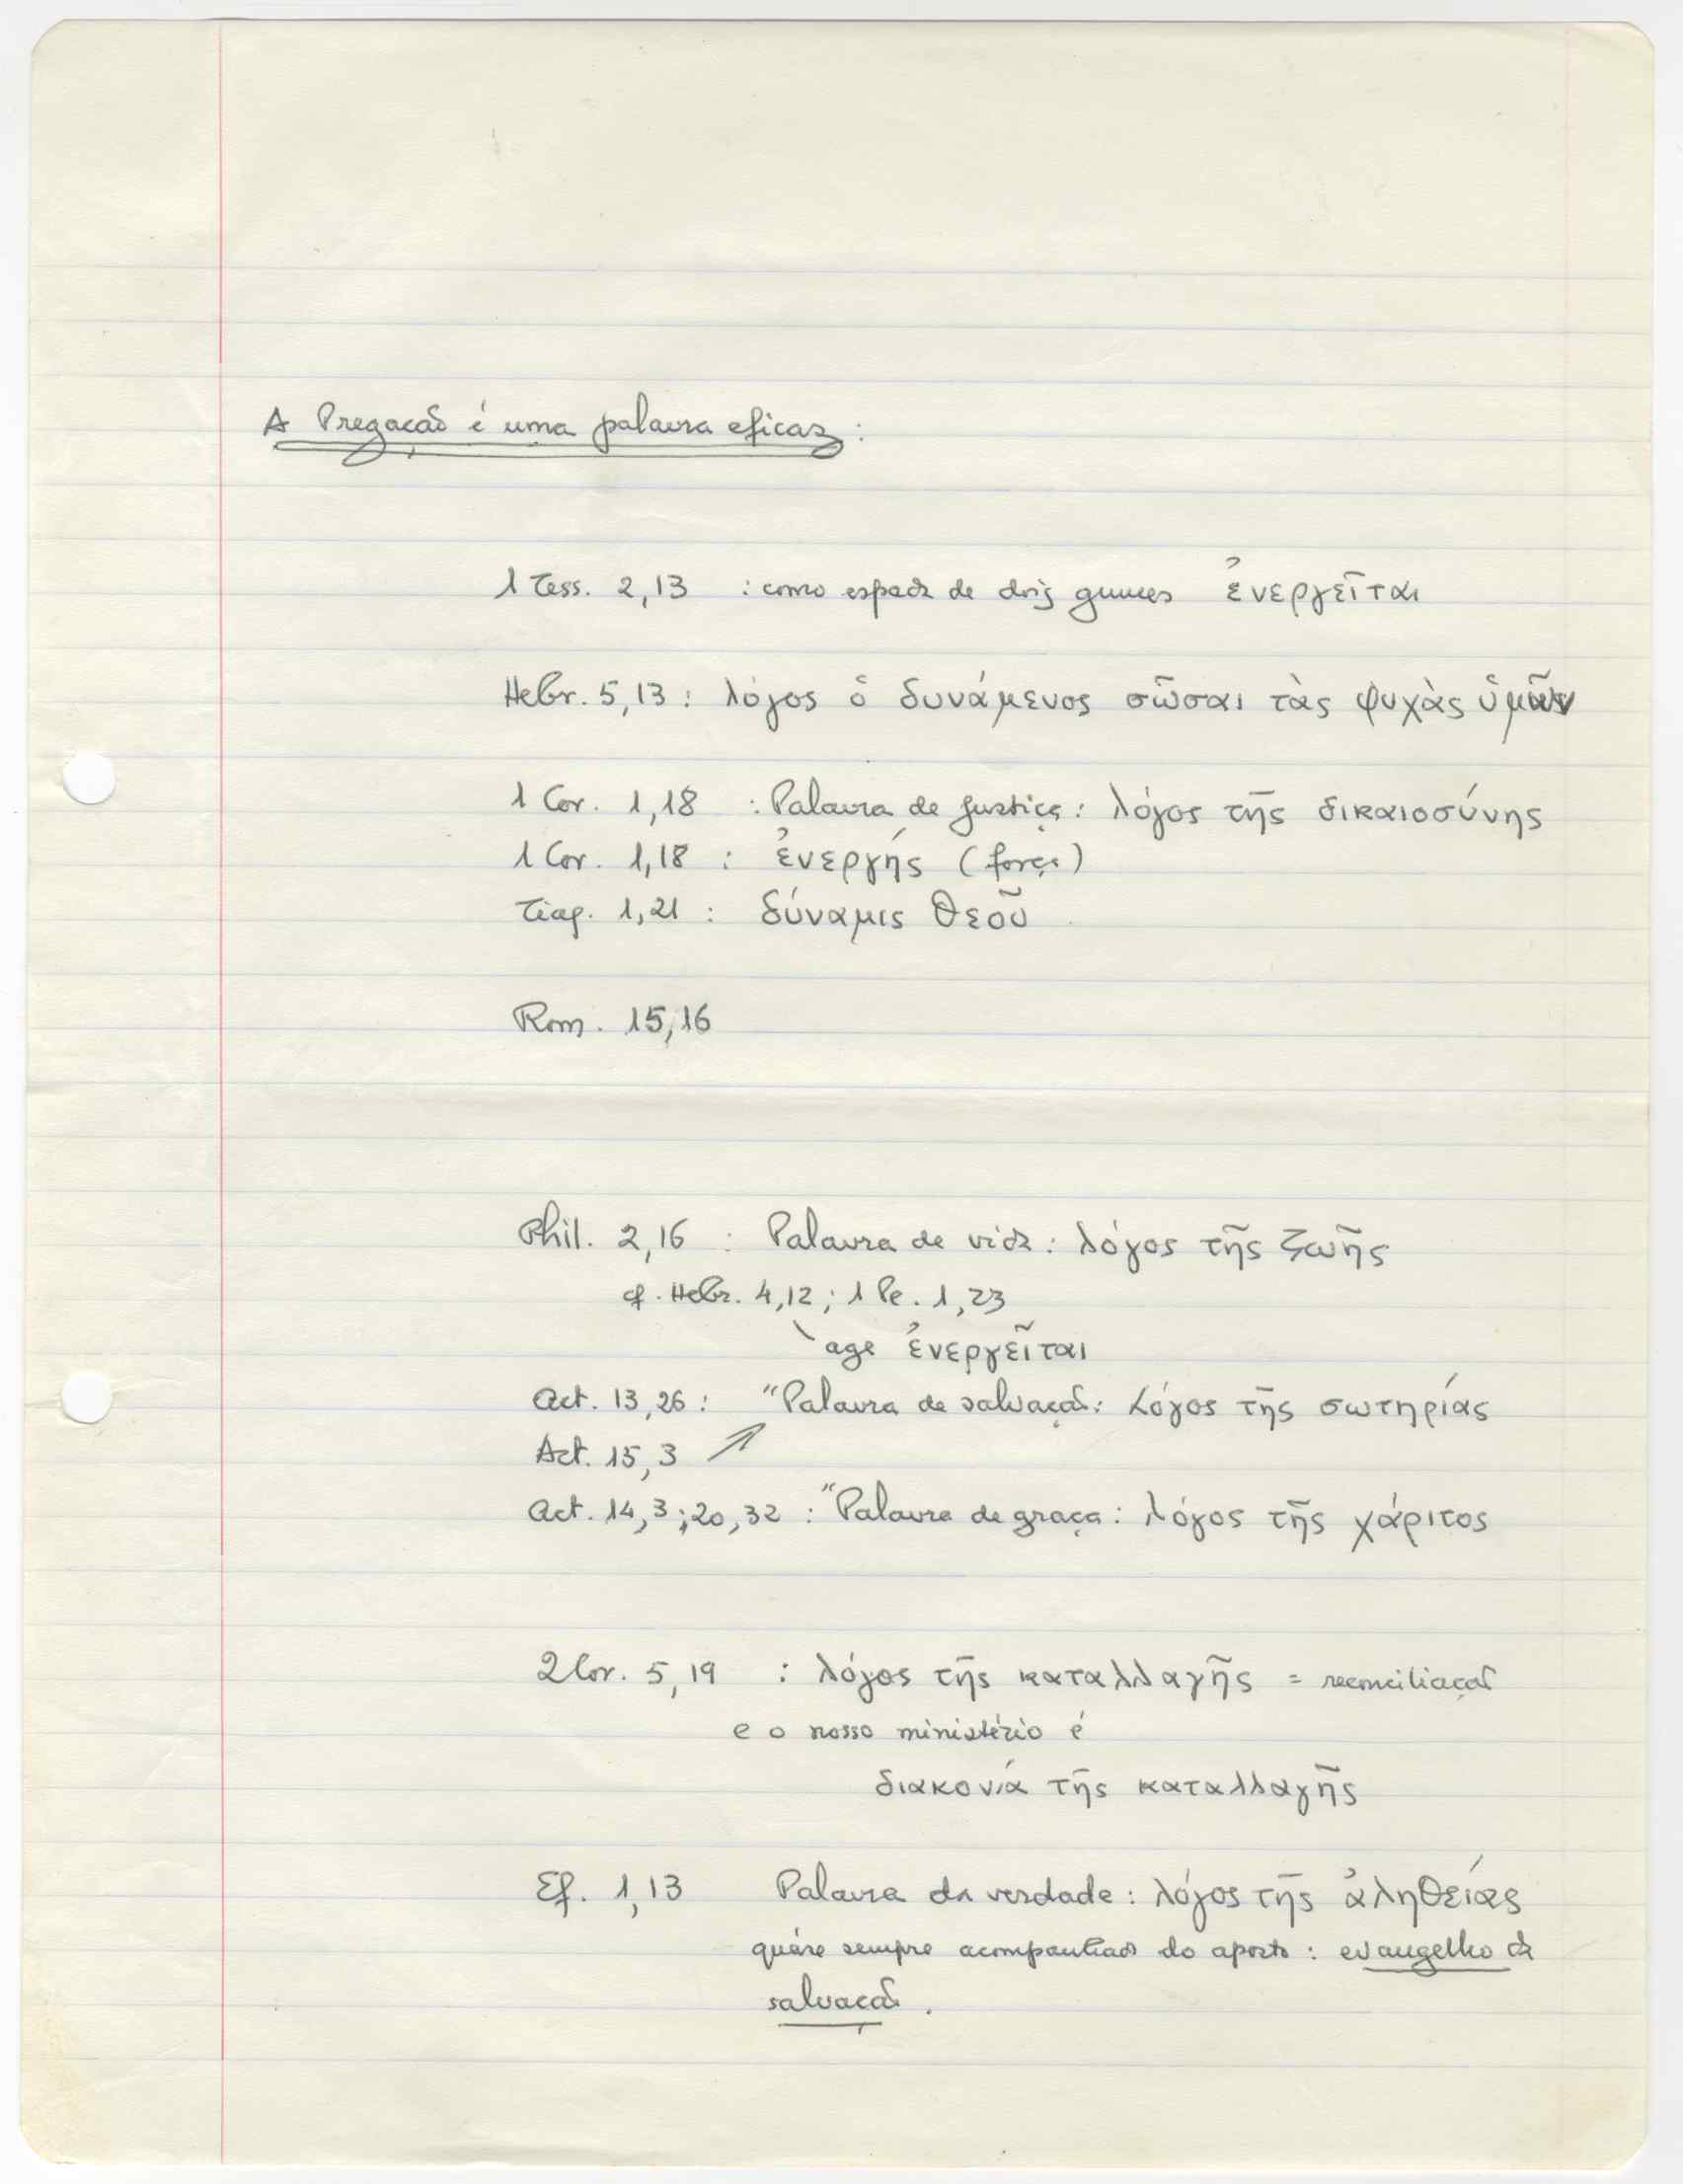 A Pregação é uma palavra eficaz:
1 Tess. 2,13 : como espada de dois gumes ἐνεργεῖται
Hebr. 5,13 : λόγος ὁ δυνάμενος σῶσαι τὰς ψυχὰς ὑμῶν
1 Cor. 1,18 : Palavra de justiça : λόγος τῆς δικαιοσύνης
1 Cor. 1,18 : ἐνεργής (força)
Tiag. 1,21 : δύναμις Θεοῦ
Rom. 15,16
Phil. 2,16 : Palavra de vida : λόγος τῆς ζωῆς
cf. Hebr. 4,12 ; 1 Pe. 1,23
age ἐνεργεῖται
Act. 13,26 : "Palavra de salvação : λόγος τῆς σωτηρίας
Act. 15,3 ↗
Act. 14,3 ; 20,32 : "Palavra de graça : λόγος τῆς χάριτος
2 Cor. 5,19 : λόγος τῆς καταλλαγῆς = reconciliação
e o nosso ministério é
διακονιά τῆς καταλλαγῆς
Ef. 1,13 Palavra da verdade : λόγος τῆς ἀληθείας
sempre acompanhado do aposto : evangelho da
salvação.